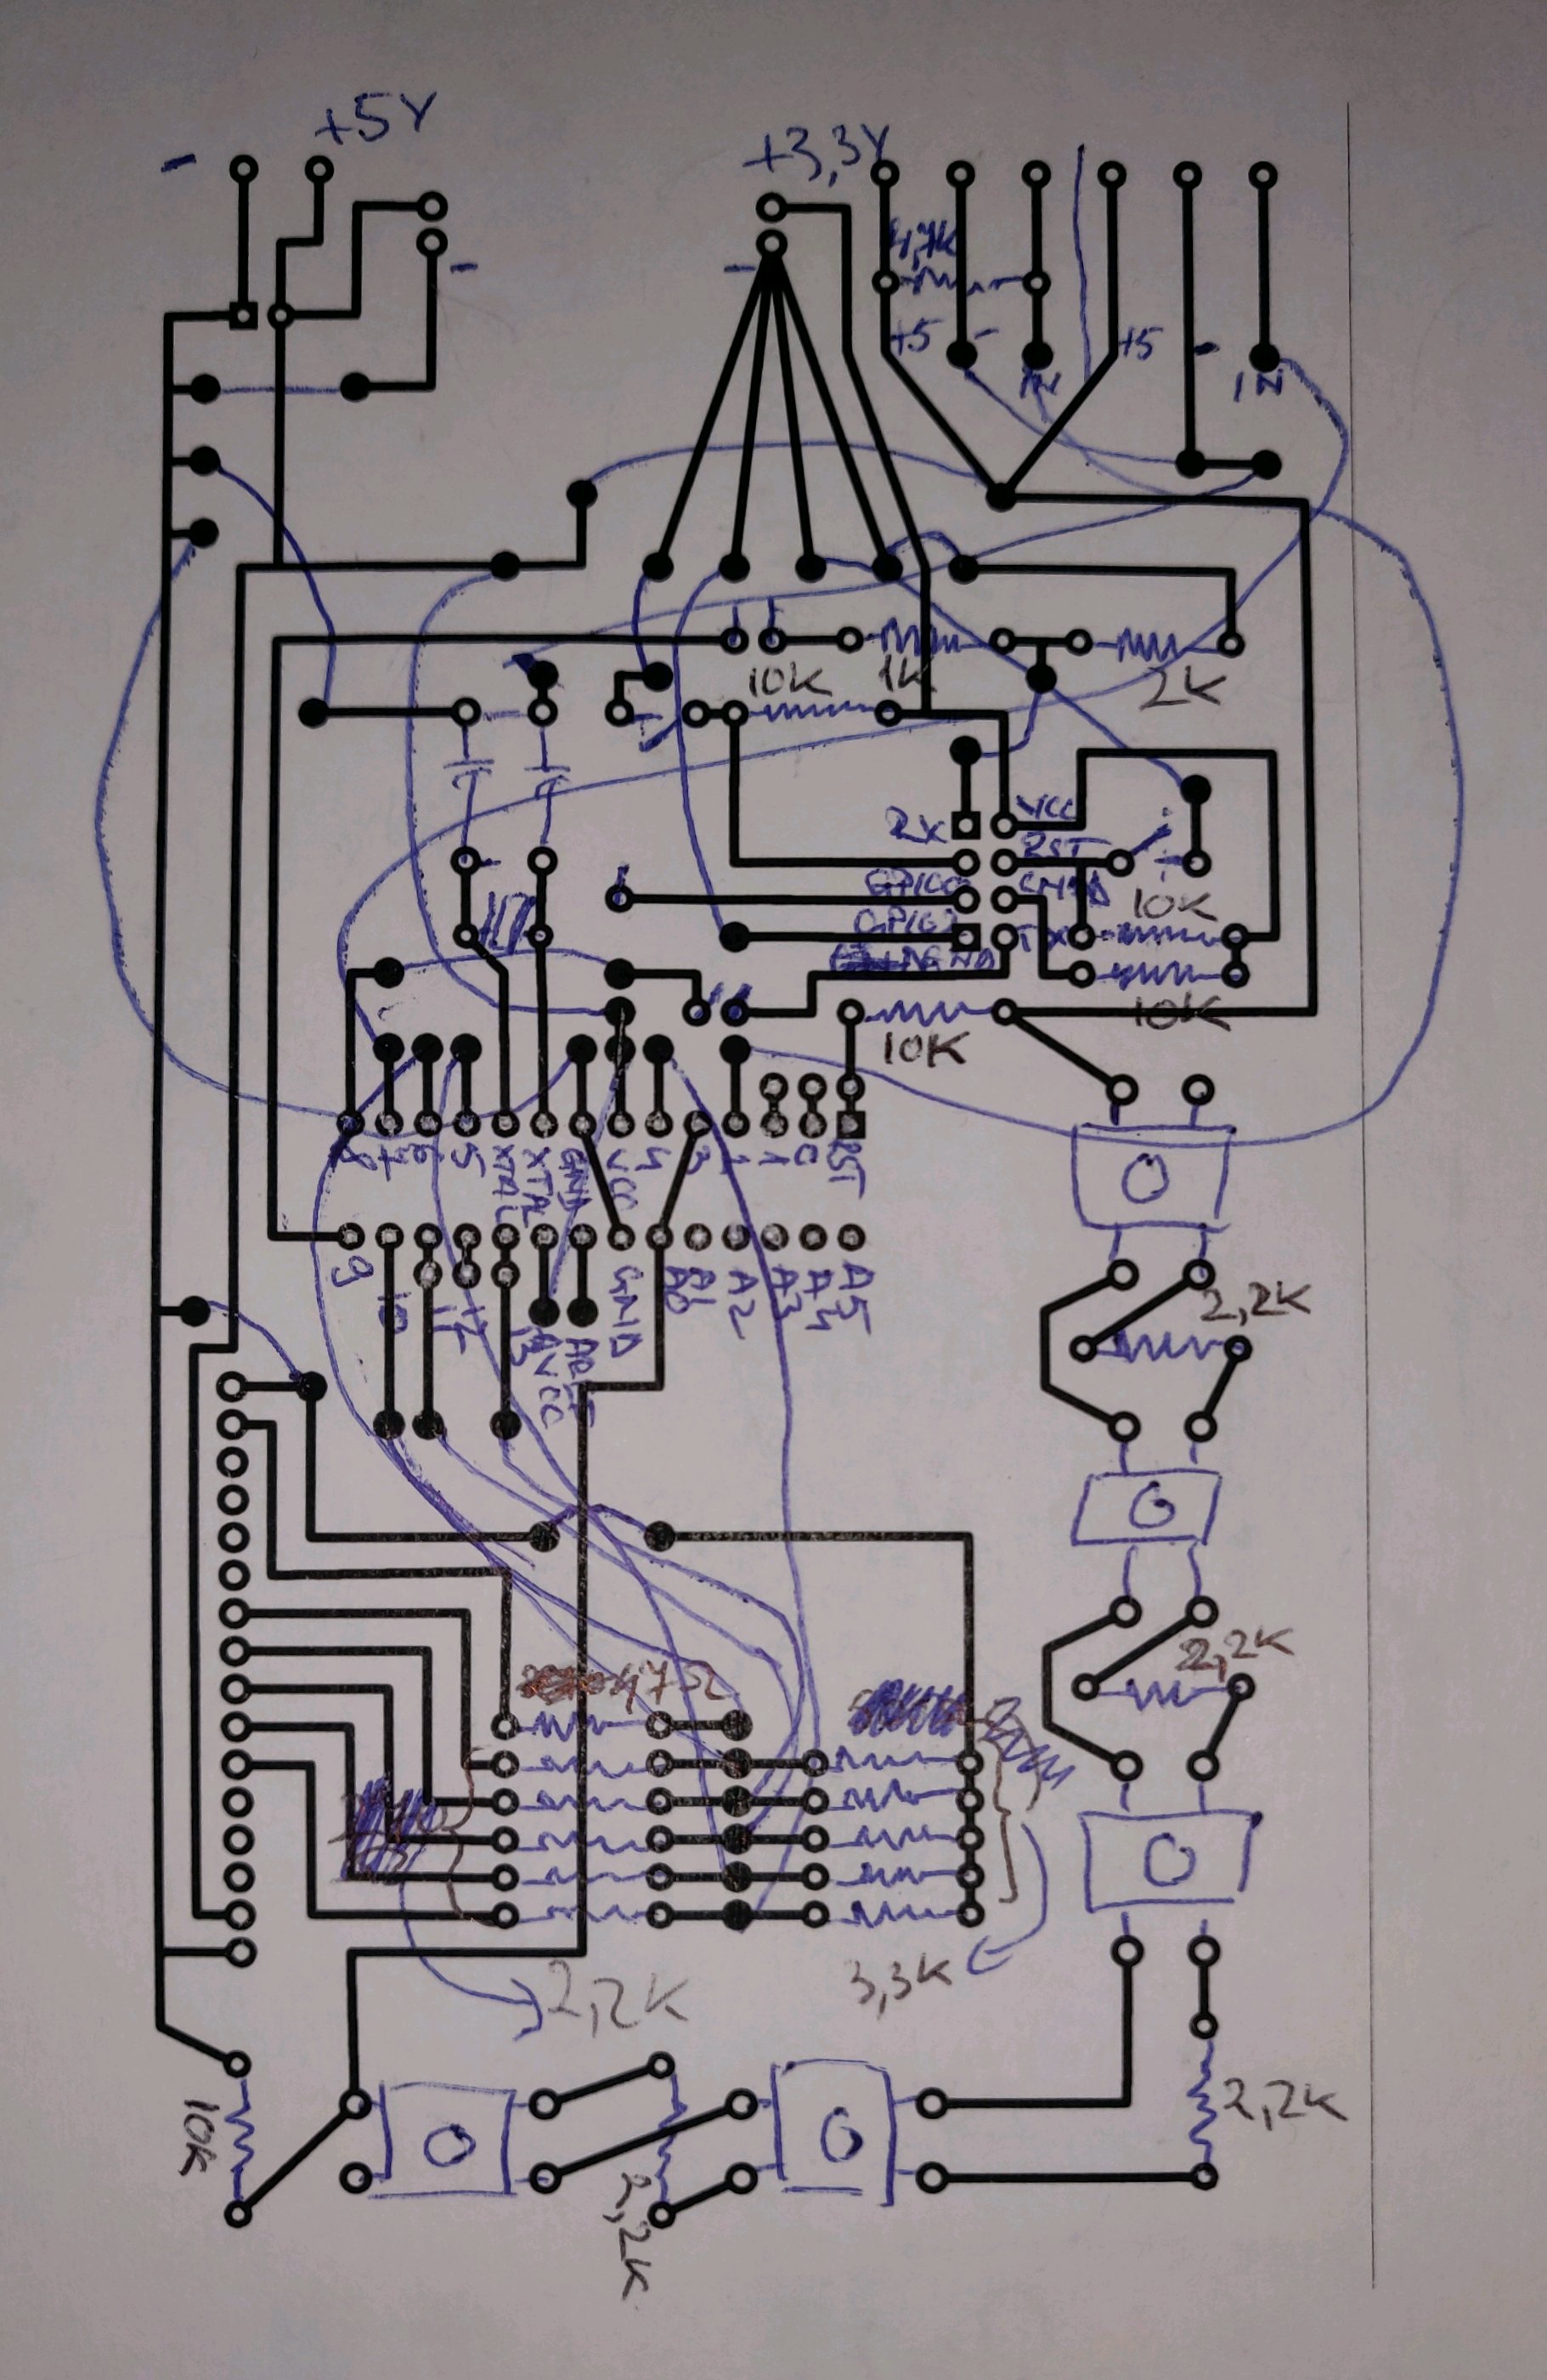 - +5V
-
+3,3V
-
4,7K
+5 - IN
+5 - IN
10K 1K
2K
RX VCC
RST
GPIO0 CH PD
10K
GPIO2
GND TX
10K
10K
8 7 6 5 XTAL XTAL GND VCC 4 3 1 1 0 RST
9 10 11 12 13 AVCC AREF GND A0 A1 A2 A3 A4 A5
2,2K
2,2K
47Ω
2,2K
3,3K
10K
2,2K
2,2K